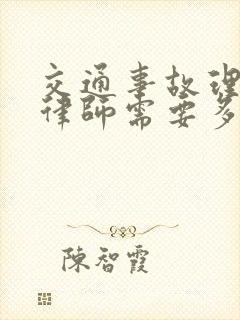 交通事故理
律師需要多
陳智霞